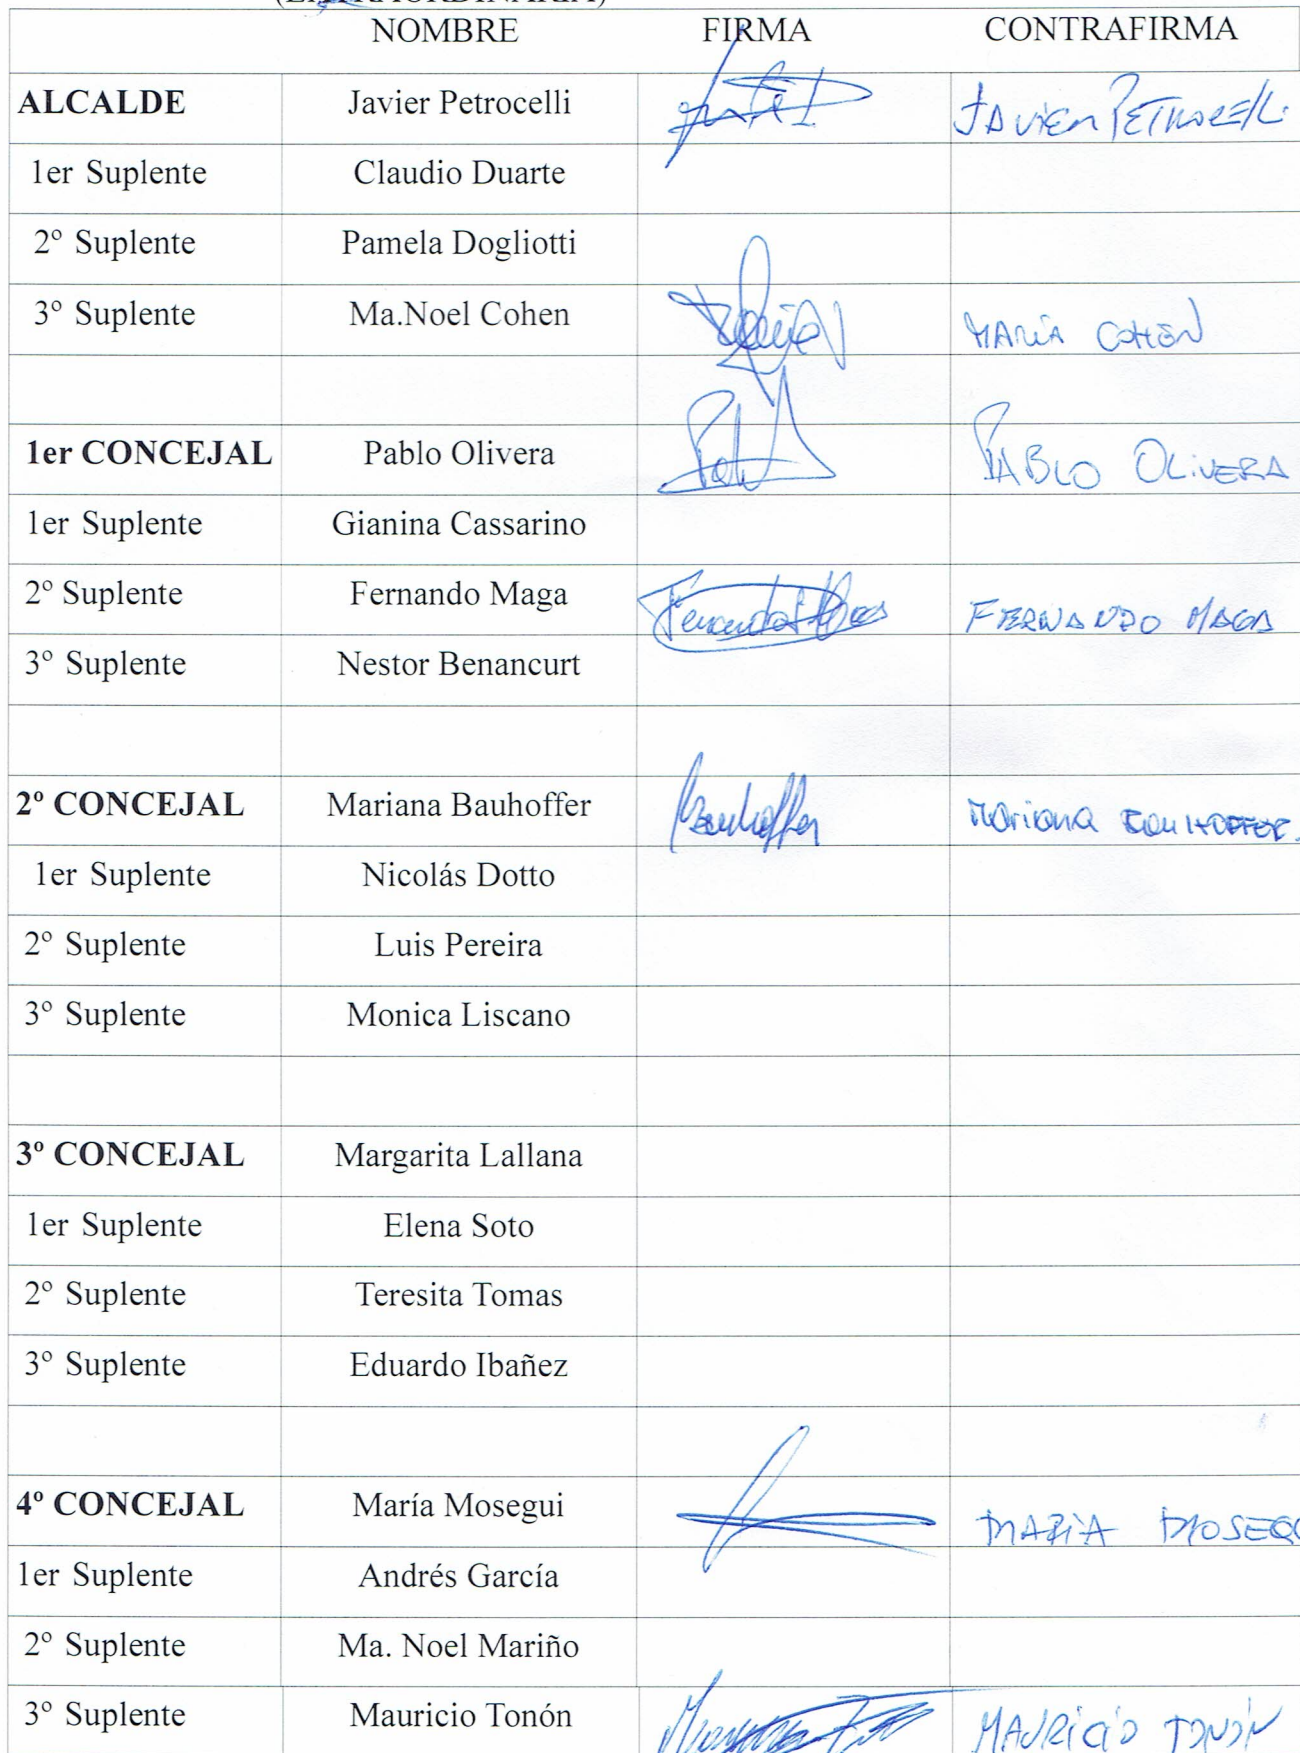 NOMBRE FIRMA CONTRAFIRMA
ALCALDE Javier Petrocelli JAVIER PETROCELLI
1er Suplente Claudio Duarte
2º Suplente Pamela Dogliotti
3º Suplente Ma.Noel Cohen MARÍA COHEN
1er CONCEJAL Pablo Olivera PABLO OLIVERA
1er Suplente Gianina Cassarino
2º Suplente Fernando Maga FERNANDO MAGA
3º Suplente Nestor Benancurt
2º CONCEJAL Mariana Bauhoffer Bauhoffer Mariana BAUHOFFER.
1er Suplente Nicolás Dotto
2º Suplente Luis Pereira
3º Suplente Monica Liscano
3º CONCEJAL Margarita Lallana
1er Suplente Elena Soto
2º Suplente Teresita Tomas
3º Suplente Eduardo Ibañez
4º CONCEJAL María Mosegui MARÍA MOSEG
1er Suplente Andrés García
2º Suplente Ma. Noel Mariño
3º Suplente Mauricio Tonón MAURICIO TONÓN